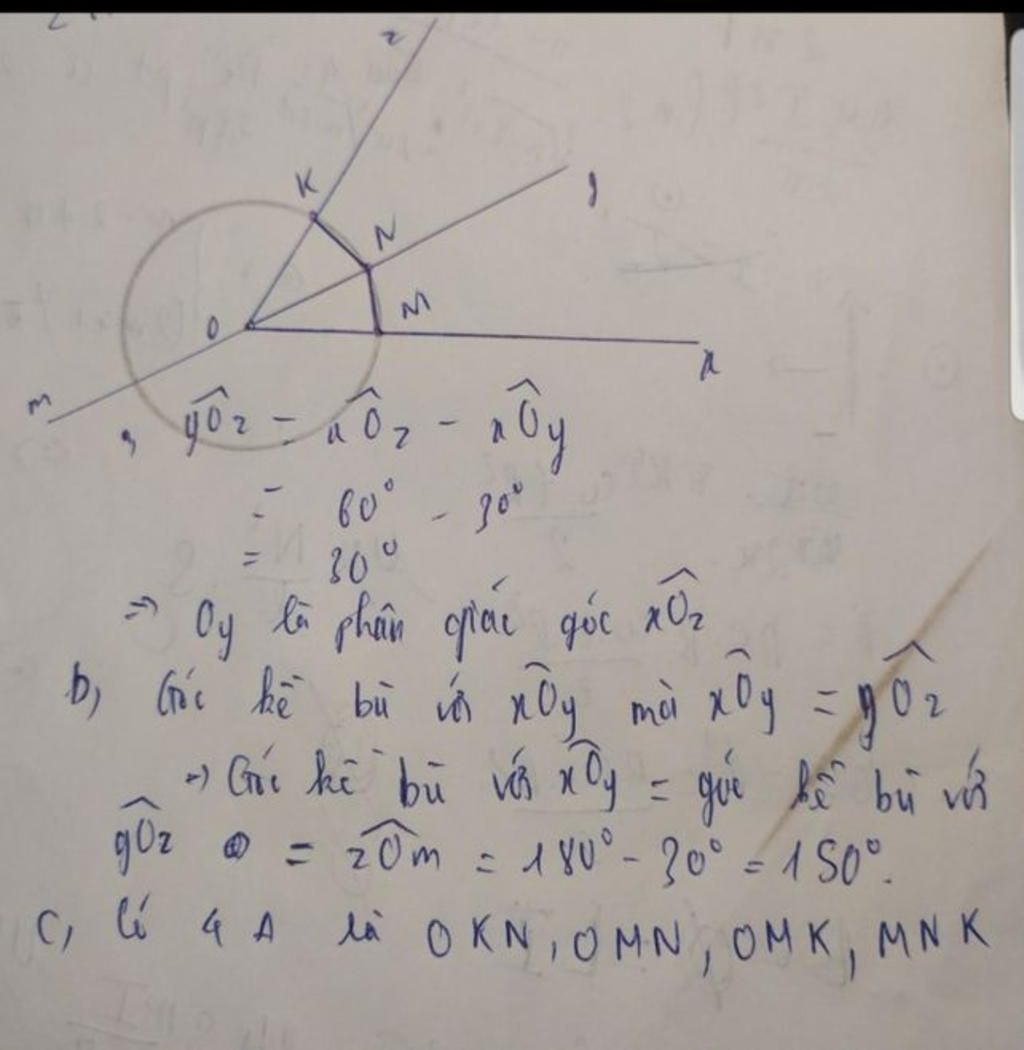 z
K
N
y
M
O
x
m
a, yÔz = xÔz - xÔy
= 60° - 30°
= 30°
=> Oy là phân giác góc xÔz
b, Góc kề bù với xÔy mà xÔy = yÔz
=> Góc kề bù với xÔy = góc kề bù với
yÔz = zÔm = 180° - 30° = 150°.
c, Có 4 Δ là OKN, OMN, OMK, MNK